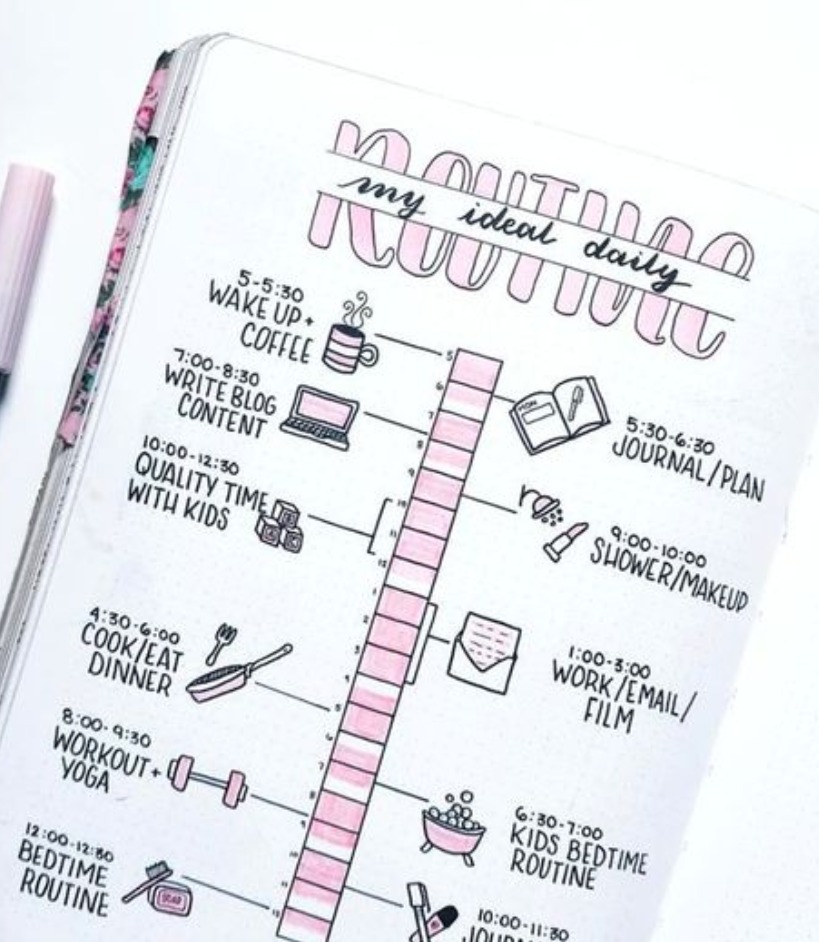 ROUTINE
my ideal daily
5-5:30
WAKE UP +
COFFEE
7:00-8:30
WRITE BLOG
CONTENT
10:00-12:30
QUALITY TIME
WITH KIDS
4:30-6:00
COOK/EAT
DINNER
8:00-9:30
WORKOUT +
YOGA
12:00-12:30
BEDTIME
ROUTINE
SOAP
5
6
7
8
9
10
11
12
1
2
3
4
5
6
7
8
9
10
11
12
MON
5:30-6:30
JOURNAL/PLAN
9:00-10:00
SHOWER/MAKEUP
1:00-3:00
WORK/EMAIL/
FILM
6:30-7:00
KIDS BEDTIME
ROUTINE
10:00-11:30